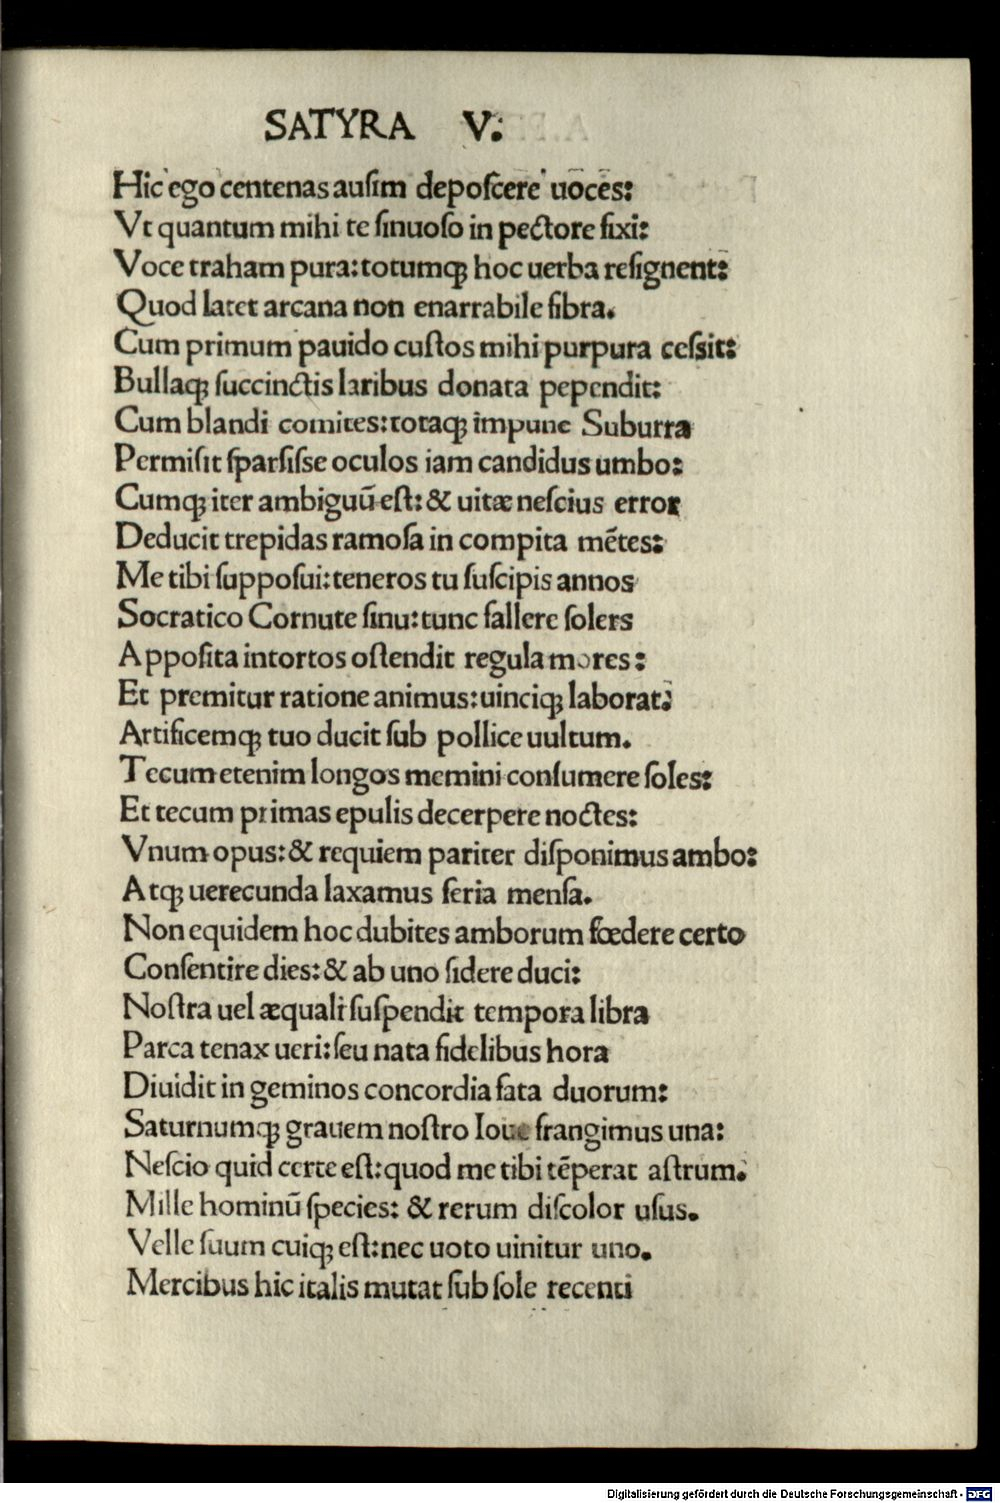 SATYRA V.
Hic ego centenas ausim deposcere uoces:
Vt quantum mihi te sinuoso in pectore fixi:
Voce traham pura: totumqꝫ hoc uerba resignent:
Quod latet arcana non enarrabile fibra.
Cum primum pauido custos mihi purpura cessit:
Bullaqꝫ succinctis laribus donata pependit:
Cum blandi comites: totaqꝫ impune Suburra
Permisit sparsisse oculos iam candidus umbo:
Cumqꝫ iter ambiguū est: & uitæ nescius error
Deducit trepidas ramosa in compita mētes:
Me tibi supposui: teneros tu suscipis annos
Socratico Cornute sinu: tunc fallere solers
Apposita intortos ostendit regula mores:
Et premitur ratione animus: uinciqꝫ laborat:
Artificemqꝫ tuo ducit sub pollice uultum.
Tecum etenim longos memini consumere soles:
Et tecum primas epulis decerpere noctes:
Vnum opus: & requiem pariter disponimus ambo:
Atqꝫ uerecunda laxamus seria mensa.
Non equidem hoc dubites amborum fœdere certo
Consentire dies: & ab uno sidere duci:
Nostra uel æquali suspendit tempora libra
Parca tenax ueri: seu nata fidelibus hora
Diuidit in geminos concordia fata duorum:
Saturnumqꝫ grauem nostro Ioue frangimus una:
Nescio quid certe est: quod me tibi tēperat astrum.
Mille hominū species: & rerum discolor usus.
Velle suum cuiqꝫ est: nec uoto uinitur uno.
Mercibus hic italis mutat sub sole recenti
Digitalisierung gefördert durch die Deutsche Forschungsgemeinschaft - DFG